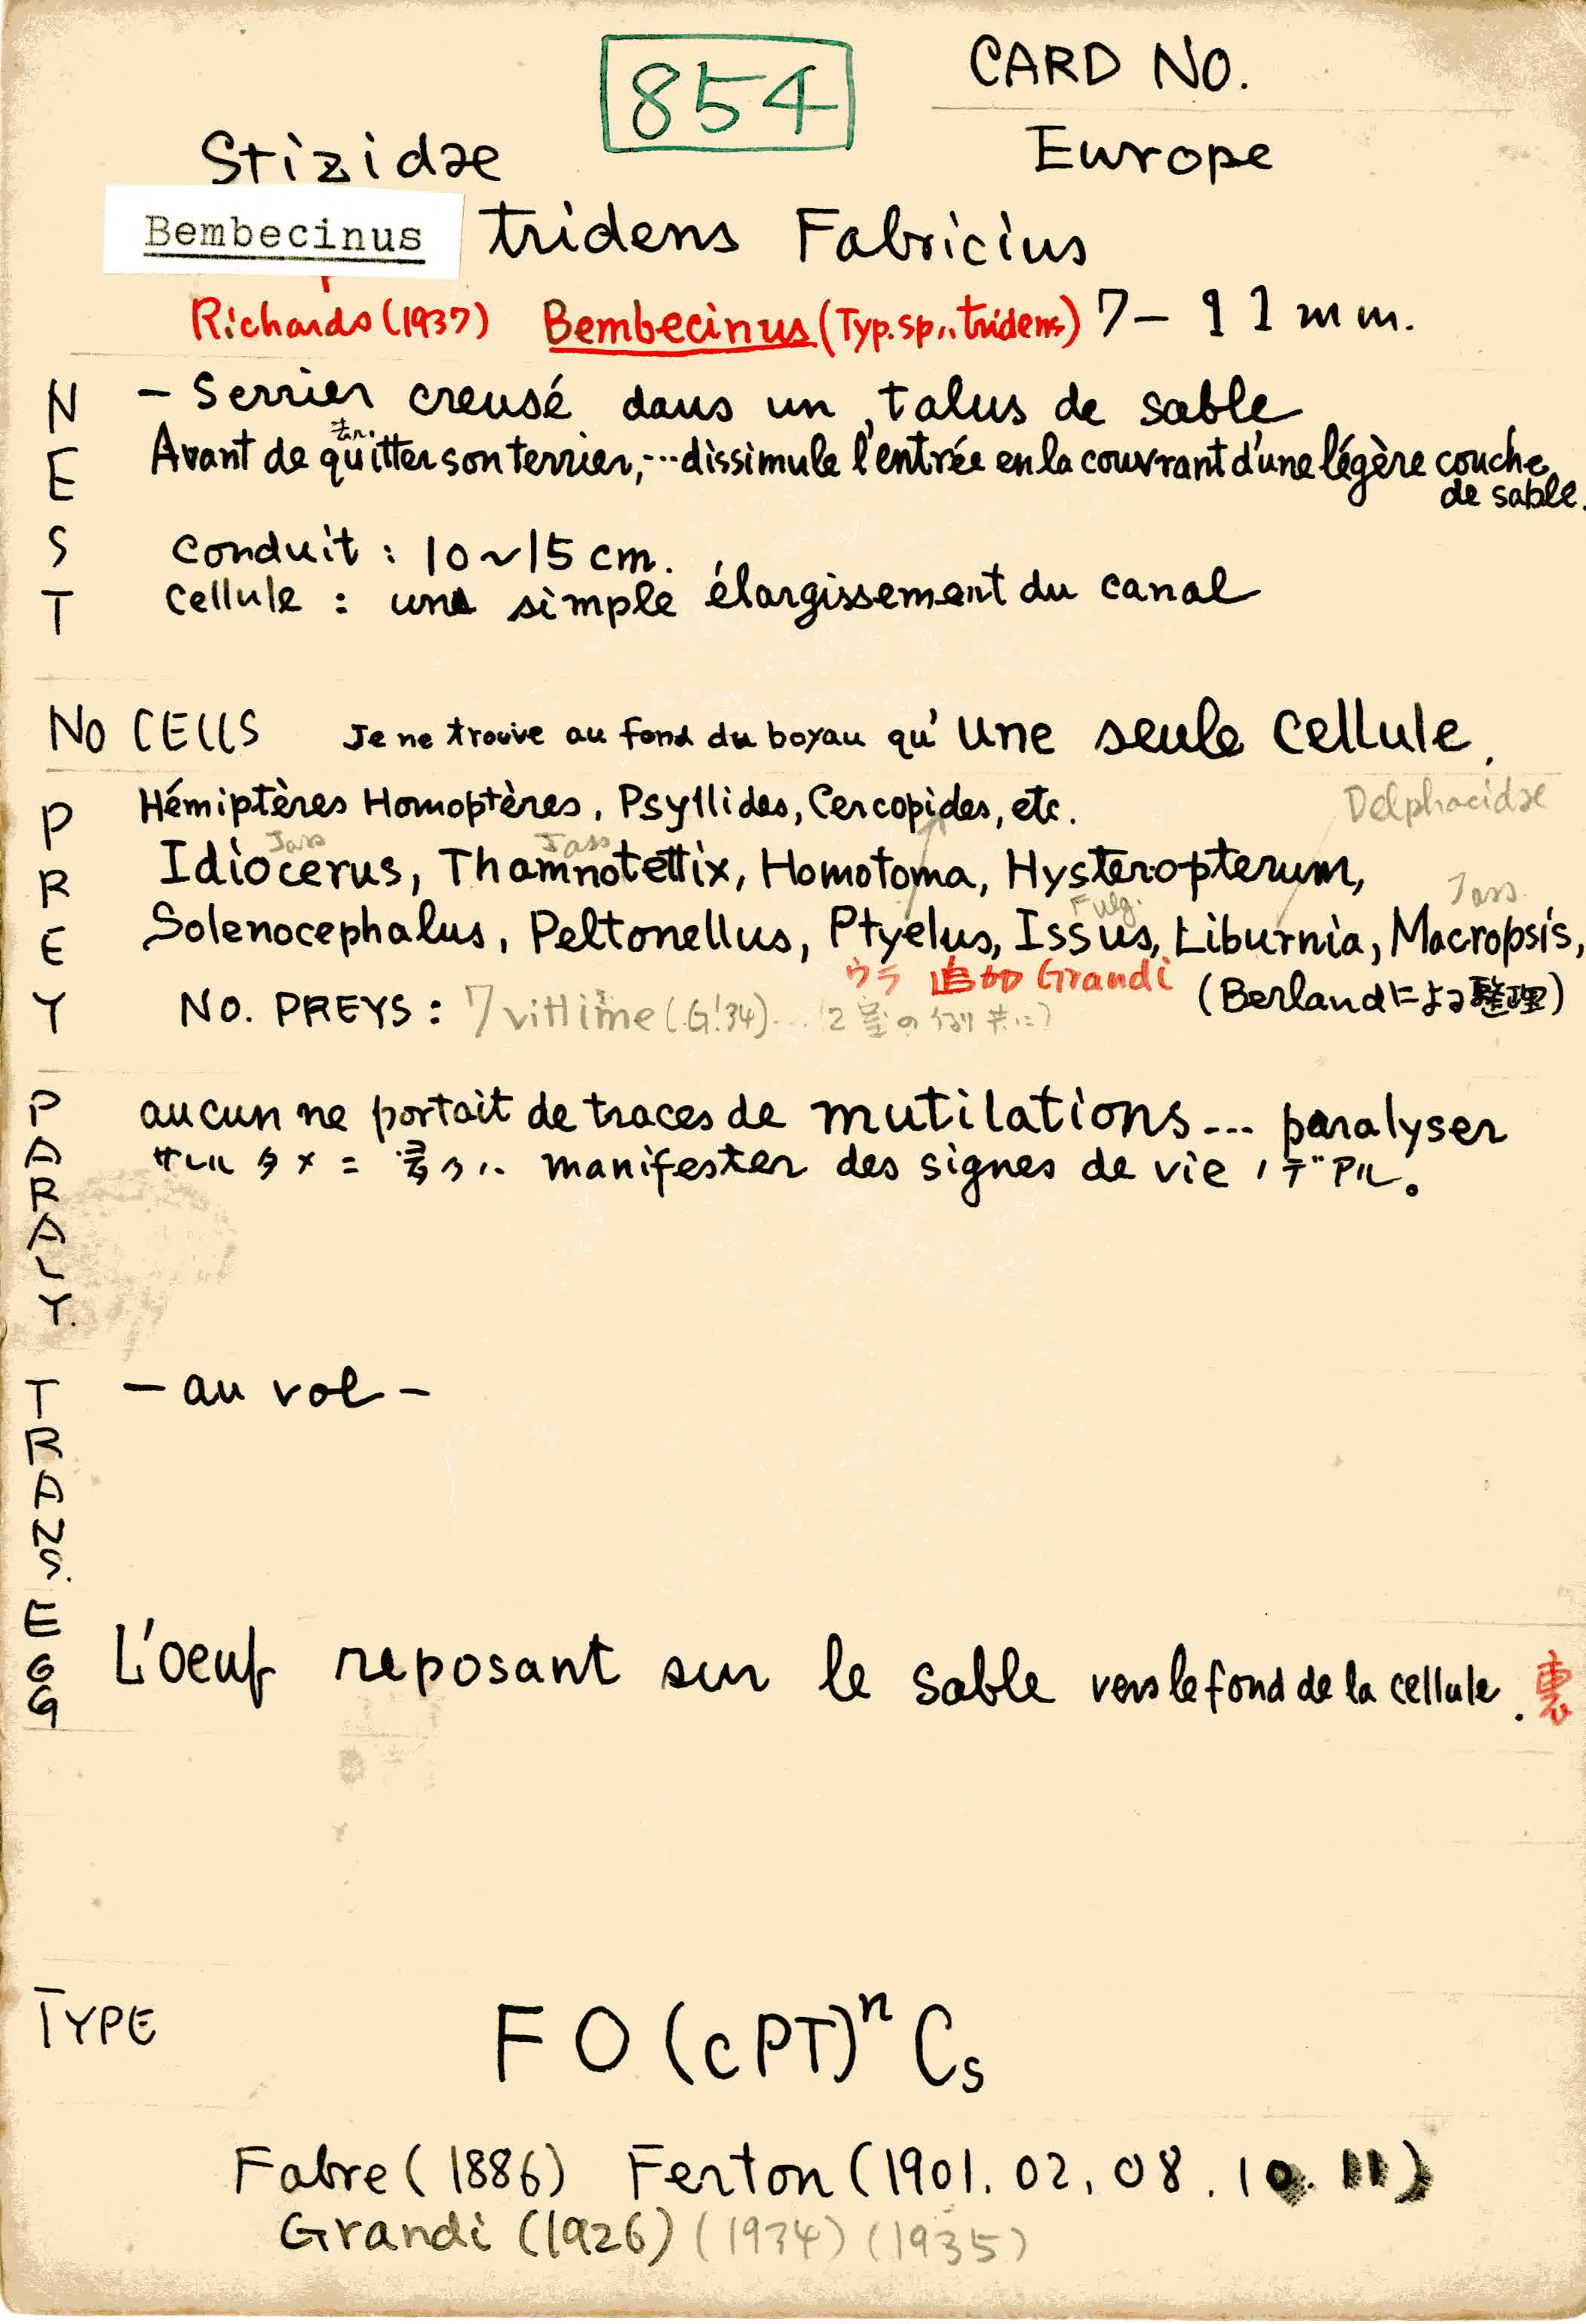 854
CARD NO.
Stizidae
Europe
Bembecinus tridens Fabricius
Richards (1937) Bembecinus (Typ. sp., tridens) 7-11mm.
NEST
- Serrier creusé dans un talus de sable
Avant de quitter son terrier,… dissimule l'entrée en la couvrant d'une légère couche
de sable.
conduit : 10~15 cm.
cellule : une simple élargissement du canal
NO CELLS Je ne trouve au fond du boyau qu'une seule cellule.
PREY
Hémiptères Homoptères, Psyllides, Cercopides, etc.
Delphacidae
Jass Jass
Idiocerus, Thamnotettix, Homotoma, Hysteropterum,
Fulg. Jass.
Solenocephalus, Peltonellus, Ptyelus, Issus, Liburnia, Macropsis,
ウラ 追加 Grandi
(Berlandによる整理)
NO. PREYS : 7 vittime (G!34)... (2室の例共に)
PARALY.
aucun ne portait de traces de mutilations... paralyser
サレルタメ manifester des signes de vie ノデアル。
TRANS.
- au vol -
EGG
L'oeuf reposant sur le sable vers le fond de la cellule. 裏
TYPE
FO(cPT)ⁿCs
Fabre (1886) Ferton (1901. 02. 08. 10. 11)
Grandi (1926) (1934) (1935)